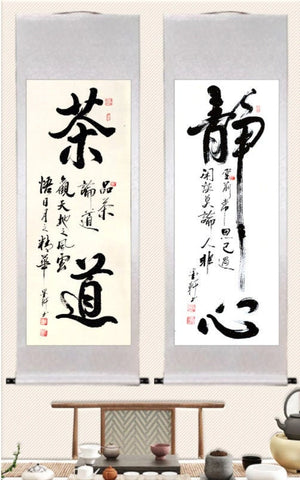 茶道
品茶
論道
觀天地之風雲
悟日月之精華
靜心
常思己過
閑談莫論人非